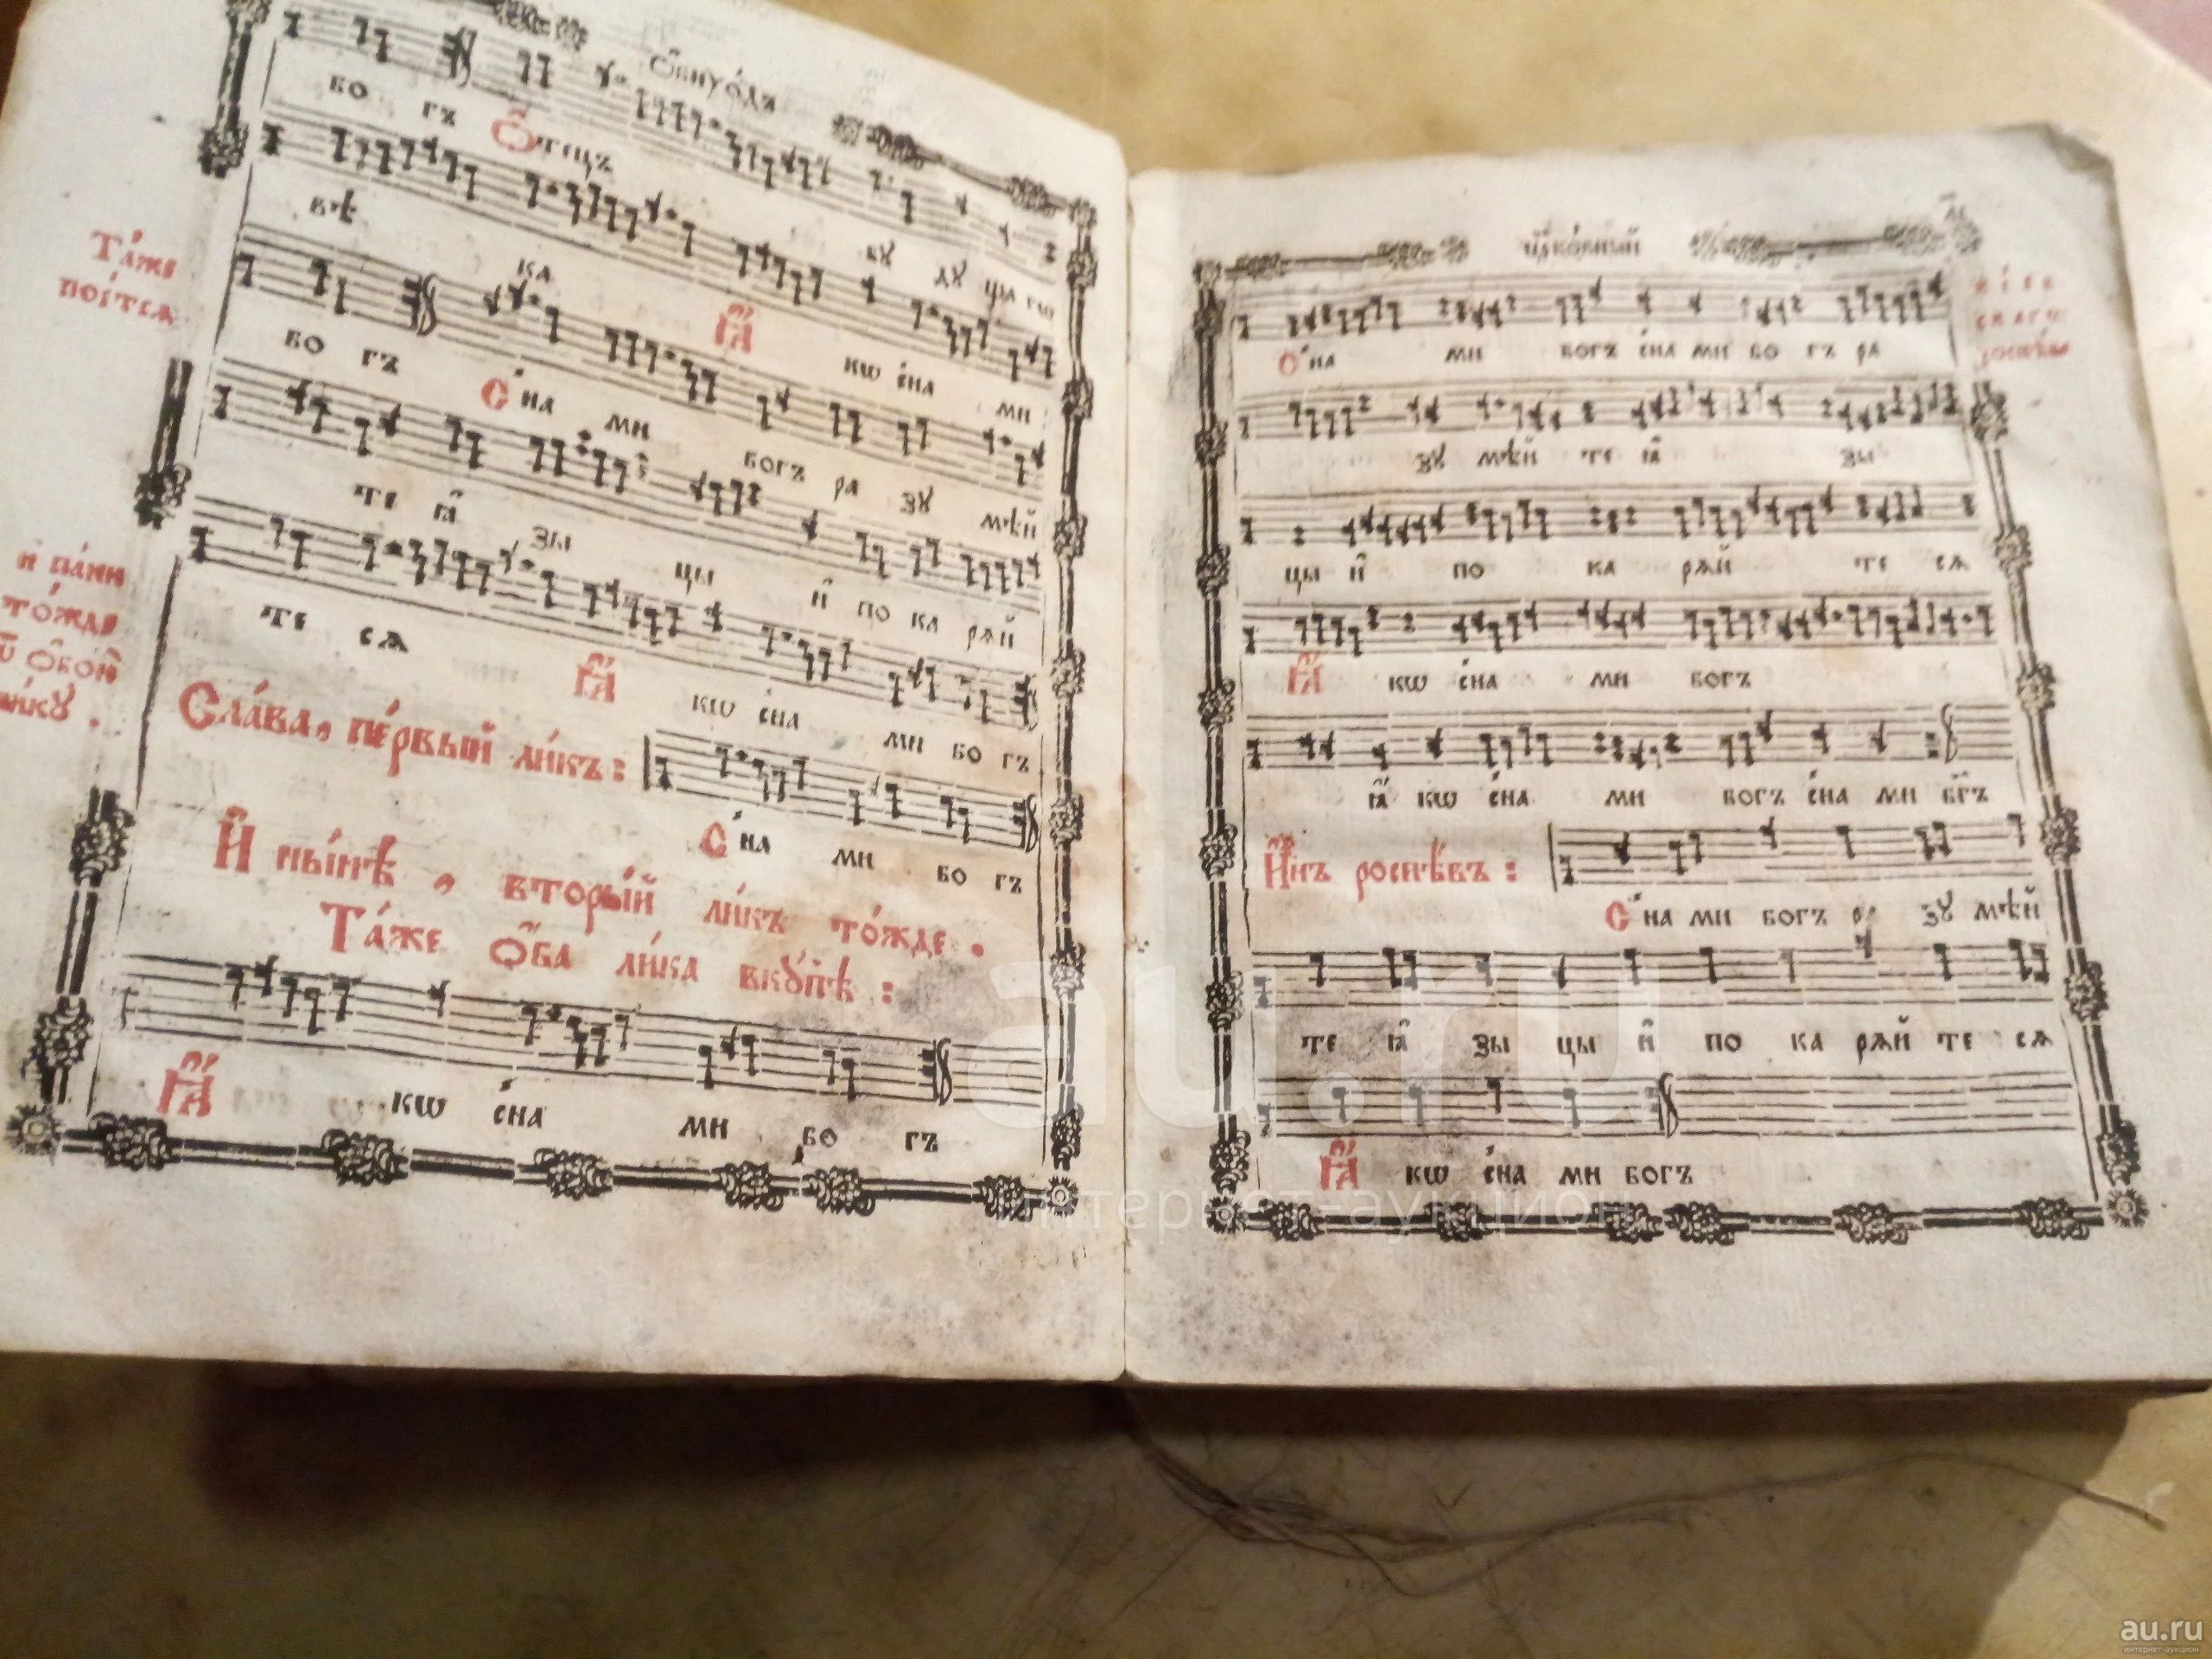 Ѻ҆бихо́дъ
бо гъ Ѻ҆тецъ
вѣ ка бꙋ дꙋ ща гѡ
Та́же
пое́тсѧ
бо гъ
Ꙗ҆́ кѡ с̾на ми
С̾на ми богъ ра зꙋ мѣй
те ꙗ҆ зы цы и҆ по ка рѧй
те сѧ
Ꙗ҆́ кѡ с̾на ми бо гъ
то́жде
Сла́ва, пе́рвый ли́къ:
С̾на ми бо гъ
И҆ ны́нѣ, вторы́й ли́къ то́жде.
Та́же ѻ҆́ба ли́ка вкꙋ́пѣ:
Ꙗ҆́ кѡ с̾на ми бо гъ
цр҃ко́вный
С̾на ми богъ с̾на ми бо гъ ра
зꙋ мѣй те ꙗ҆ зы
цы и҆ по ка рѧй те сѧ
Ꙗ҆́ кѡ с̾на ми богъ
ꙗ҆́ кѡ с̾на ми богъ с̾на ми бг҃ъ
И҆́нъ роспѣ́въ:
С̾на ми богъ ра зꙋ мѣй
те ꙗ҆ зы цы и҆ по ка рѧй те сѧ
Ꙗ҆́ кѡ с̾на ми богъ
au.ru
интернет-аукцион
au.ru
интернет-аукцион